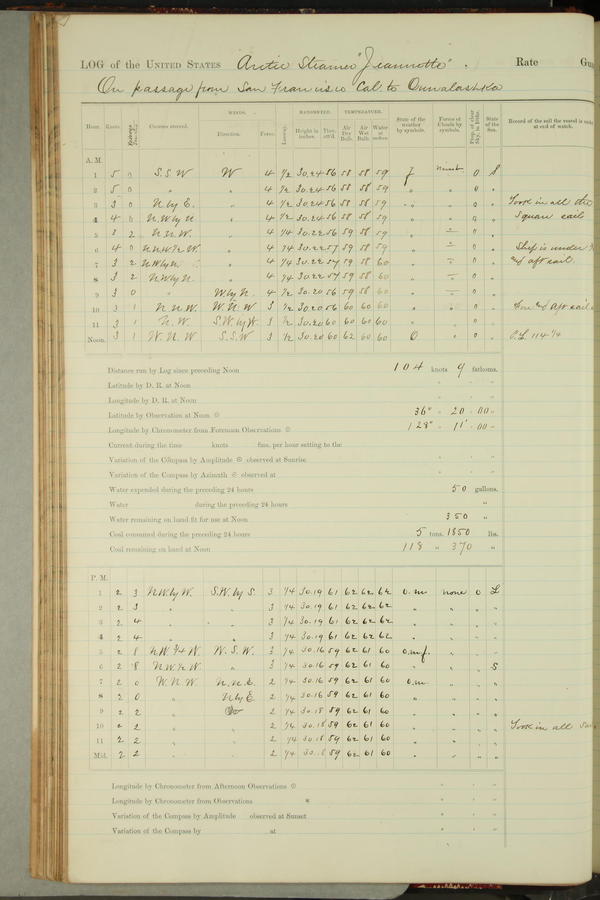 LOG of the UNITED STATES Arctic Steamer "Jeannette". Rate
On passage from San Francisco Cal. to Ounalaska
WINDS. BAROMETER. TEMPERATURE.
Hour. Knots. Courses steered. Direction. Force. Leeway. Height in inches. Ther. att'd. Air Dry Bulb. Air Wet Bulb. Water at State of the weather by symbols. Forms of Clouds by symbols. Prop. of clear Sky, in 10ths. State of the Sea. Record of the sail the vessel is under at end of watch.
A. M.
1 5 0 S.S.W W 4 1/2 30.24 56 58 58 59 f 0 S
2 5 0 " " 4 1/2 30.24 56 58 58 59 " " 0 "
3 3 0 N by E. " 4 1/2 30.24 56 58 58 59 " " 0 " Took in all the
4 4 0 N.W by N " 4 1/2 30.24 56 58 58 59 " " 0 " Square sail
5 3 2 N.N.W. " 4 1/4 30.22 56 59 58 59 " " 0 "
6 4 0 " 4 1/4 30.22 57 59 58 59 " " 0 " Ship is under
7 3 2 N.W by N " 4 1/4 30.22 57 59 58 60 " " 0 " aft sail.
8 3 2 N.W by N. " 4 1/4 30.22 57 59 58 60 " " 0 "
9 3 0 " W. by N. 4 1/2 30.20 56 59 58 60 " " 0 "
10 3 1 N.N.W. W.N.W 3 1/2 30.20 56 60 60 60 " " 0 " aft sail
11 3 1 N.W. S.W. by W. 3 1/2 30.20 60 60 61 60 " " 0 "
Noon. 3 1 W.N.W S.S.W 3 1/2 30.20 60 62 60 60 O " 0 " P.L. 114 1/4
Distance run by Log since preceding Noon 104 knots 9 fathoms.
Latitude by D. R. at Noon
Longitude by D. R. at Noon
Latitude by Observation at Noon 36° 20 00"
Longitude by Chronometer from Forenoon Observations 128° 11' 00"
Current during the time knots fms. per hour setting to the
Variation of the Compass by Amplitude observed at Sunrise
Variation of the Compass by Azimuth observed at
Water expended during the preceding 24 hours 50 gallons.
Water during the preceding 24 hours "
Water remaining on hand fit for use at Noon 350 "
Coal consumed during the preceding 24 hours 5 tons. 1850 lbs.
Coal remaining on hand at Noon 118 " 370 "
P. M.
1 2 3 N.W. by W. S.W. by S. 3 1/4 30.19 61 62 62 62 o.m none 0 L
2 2 3 " " 3 1/4 30.19 61 62 62 62 " " " "
3 2 4 " " 3 1/4 30.19 61 62 62 62 " " " "
4 2 4 " " 3 1/4 30.19 61 62 62 62 " " " "
5 2 8 N.W 3/4 W. W.S.W. 3 1/4 30.16 59 62 61 60 o.m.f. " " "
6 2 8 N.W. 1/2 W. " 3 1/4 30.16 59 62 61 60 " " " S
7 2 0 W.N.W N.N.E. 2 1/4 30.16 59 62 61 60 o.m. " " "
8 2 0 " N by E 2 1/4 30.16 59 62 61 60 " " " "
9 2 2 " 2 1/4 30.18 59 62 61 60 " " " "
10 2 2 " " 2 1/4 30.18 59 62 61 60 " " " " Took in all
11 2 2 " " 2 1/4 30.18 59 62 61 60 " " " "
Mid. 2 2 " " 2 1/4 30.18 59 62 61 60 " " " "
Longitude by Chronometer from Afternoon Observations
Longitude by Chronometer from Observations *
Variation of the Compass by Amplitude observed at Sunset
Variation of the Compass by at